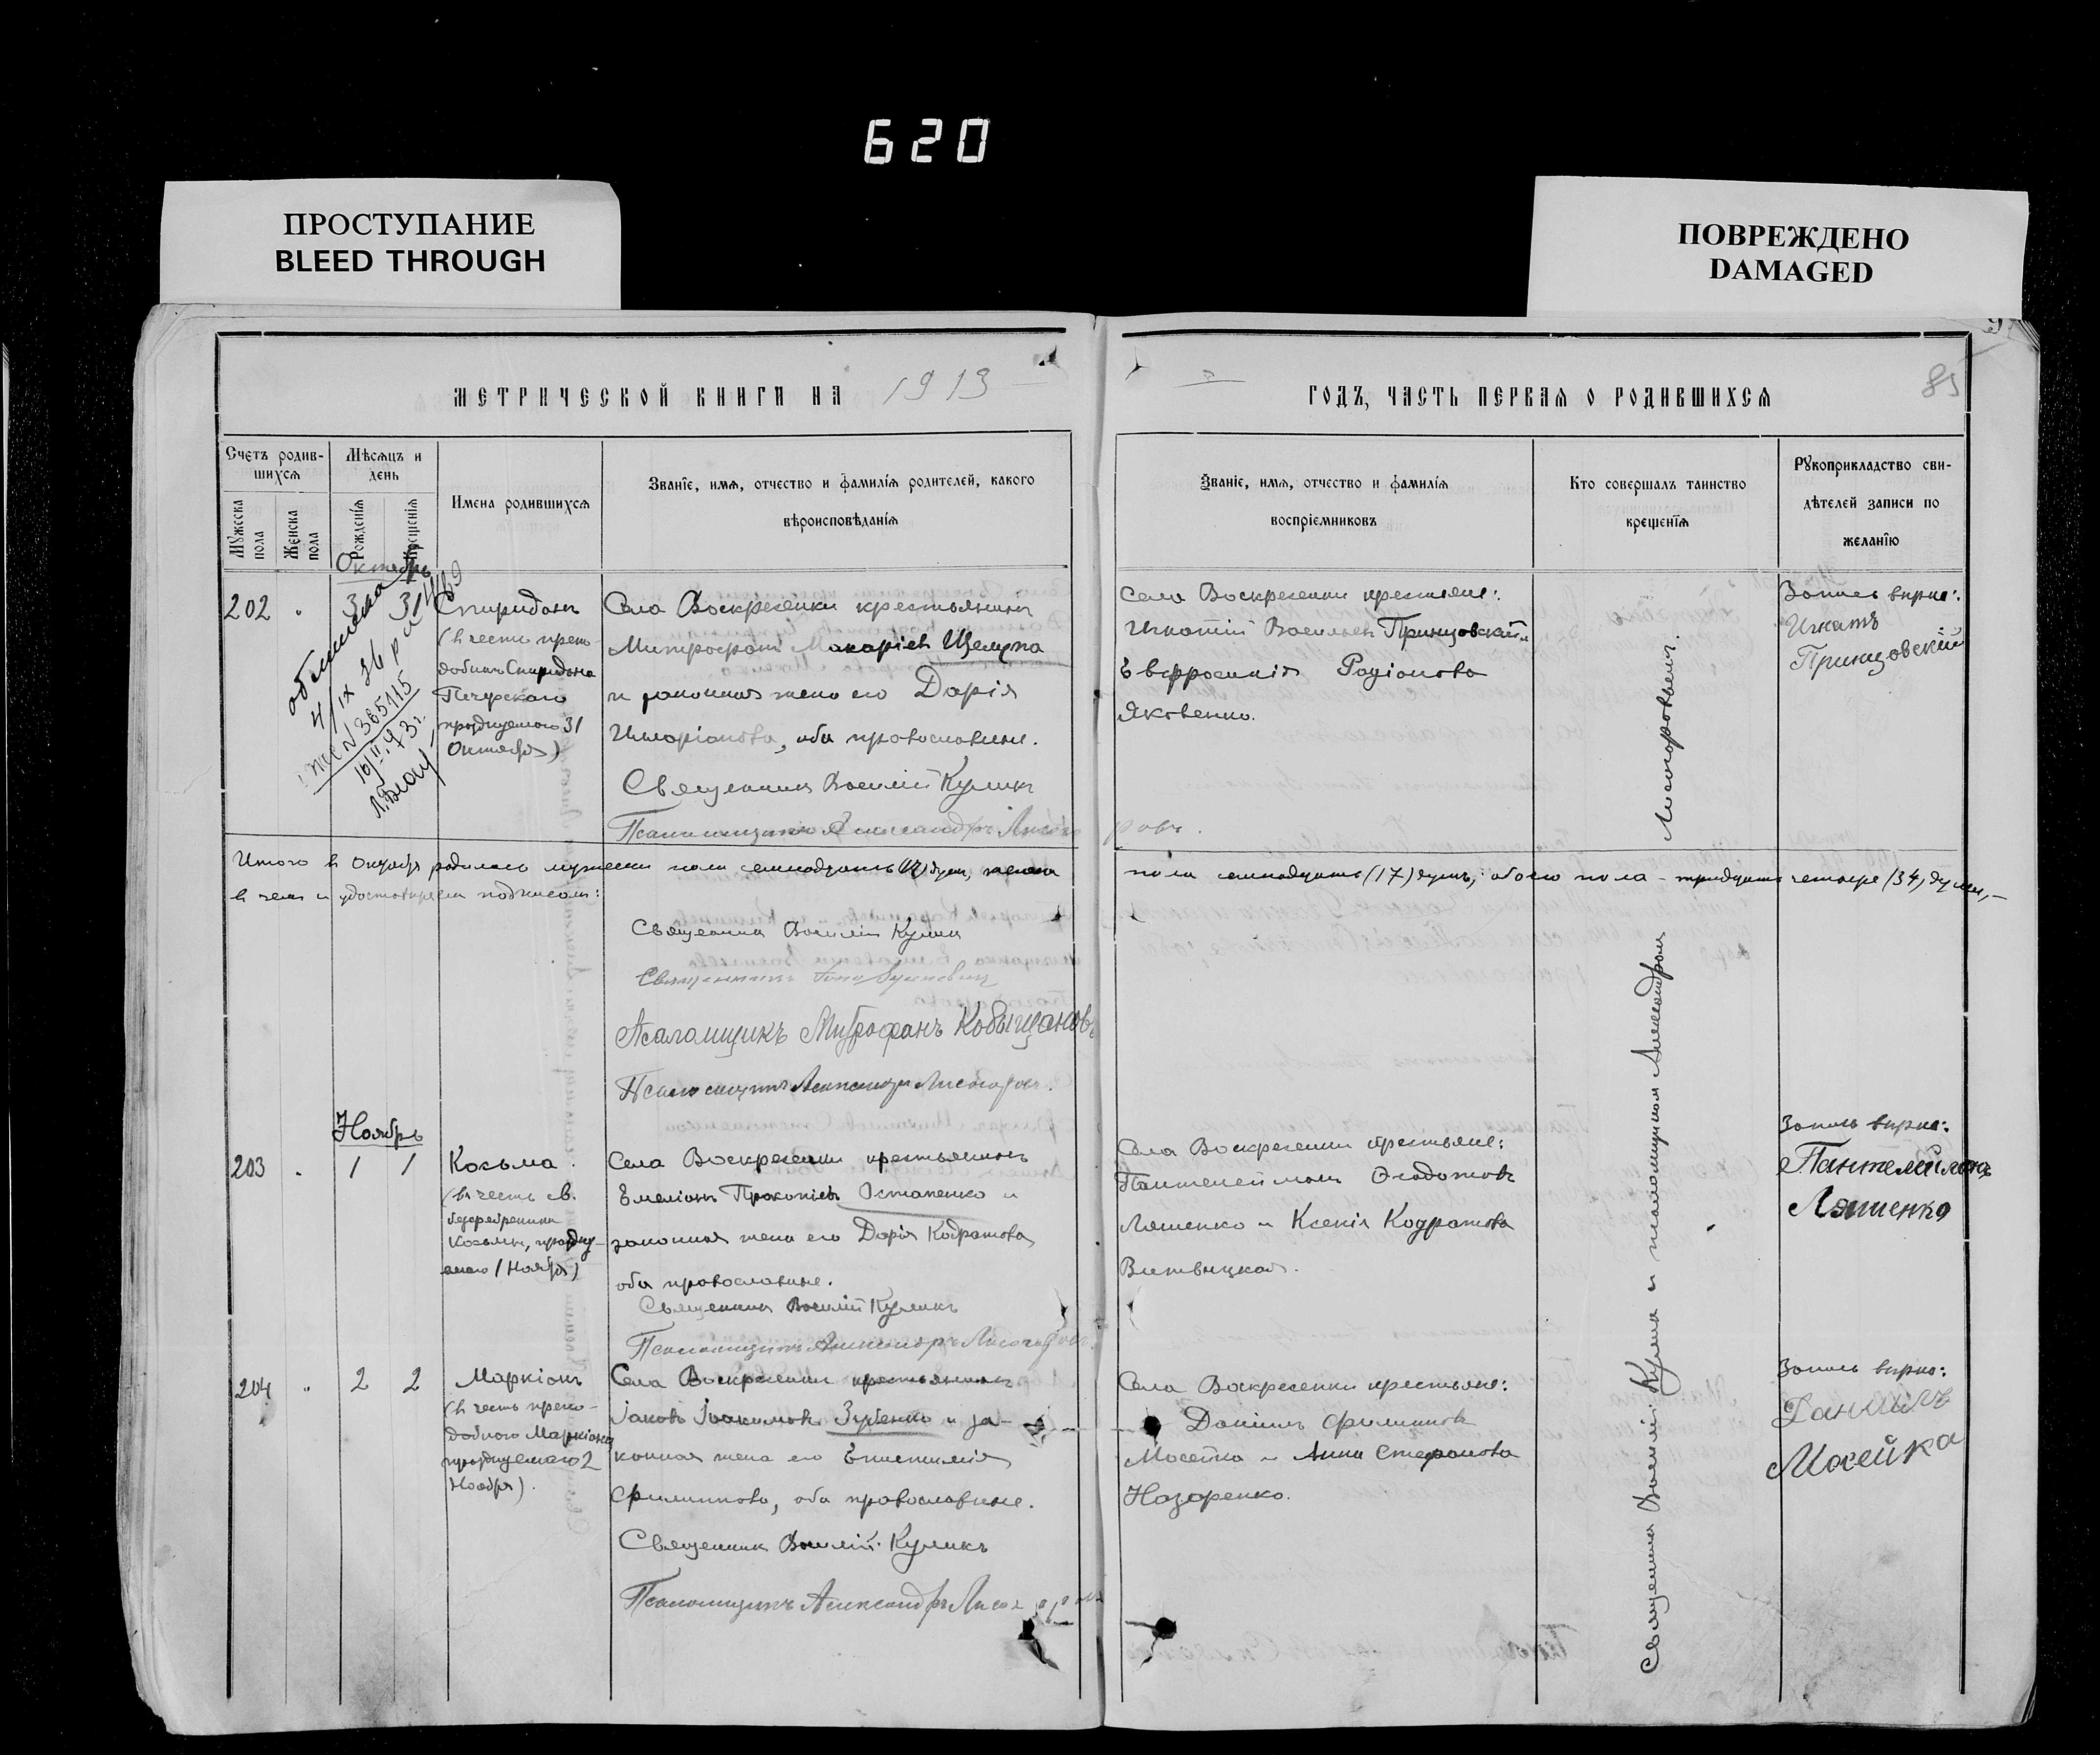 620
ПРОСТУПАНИЕ
BLEED THROUGH
ПОВРЕЖДЕНО
DAMAGED
МЕТРИЧЕСКОЙ КНИГИ НА 1913
ГОДЪ, ЧАСТЬ ПЕРВАЯ О РОДИВШИХСЯ
85
Счетъ родив-
шихся
Мѣсяцъ и
день
Мужеска
пола
Женска
пола
Рожденія
Крещенія
Имена родившихся
Званіе, имя, отчество и фамилія родителей, какого
вѣроисповѣданія
Званіе, имя, отчество и фамилія
воспріемниковъ
Кто совершалъ таинство
крещенія
Рукоприкладство сви-
дѣтелей записи по
желанію
Октябрь
202 " 31
Спиридонъ
(въ честь препо-
добнаго Спиридона
Печерскаго
празднуемаго 31
Октября)
Села Воскресенки крестьянинъ
Митрофанъ Макаріевъ Щелупа
и законная жена его Дарія
оба православные.
Священникъ Василій Куликъ
Псаломщикъ Александръ Лисогоровъ.
Села Воскресенки крестьяне:
Игнатій Васильевъ Принцовскій и
Евфросинія Родіонова
Яковенко.
Запись вѣрна:
Игнатъ
Принцовскій
4/IX 36 р
№ 365115
16/II 73 г.
Итого въ Октябрѣ родилось мужеска пола семнадцать (17) душъ, женска
пола семнадцать (17) душъ, обоего пола – тридцать четыре (34) души, –
въ чемъ и удостовѣряемъ подписомъ:
Священникъ Василій Куликъ
Священникъ
Псаломщикъ Митрофанъ Кобыщановъ
Псаломщикъ Александръ Лисогоровъ.
Ноябрь
203 " 1 1
Козьма.
(въ честь св.
безсребреника
Козьмы, праздну-
емаго 1 Ноября)
Села Воскресенки крестьянинъ
Емеліанъ Прокопіевъ Остапенко и
законная жена его Дарія Кодратова,
оба православные.
Священникъ Василій Куликъ
Псаломщикъ Александръ Лисогоровъ.
Села Воскресенки крестьяне:
Пантелеймонъ Ѳеодотовъ
Ляшенко и Ксенія Кодратова
Запись вѣрна:
Пантелеймонъ
Ляшенко
204 " 2 2
Маркіонъ
(въ честь препо-
добнаго Маркіона
празднуемаго 2
Ноября).
Села Воскресенки крестьянинъ
Іаковъ Іоакимовъ Зубенко и за-
конная жена его Епистимія
Филиппова, оба православные.
Священникъ Василій Куликъ
Псаломщикъ Александръ Лисогоровъ
Села Воскресенки крестьяне:
Даніилъ Филипповъ
Мосейка и Анна Стефанова
Назаренко.
Запись вѣрна:
Данiилъ
Мосейка
Священникъ Василій Куликъ и псаломщикъ Александръ Лисогоровичъ.